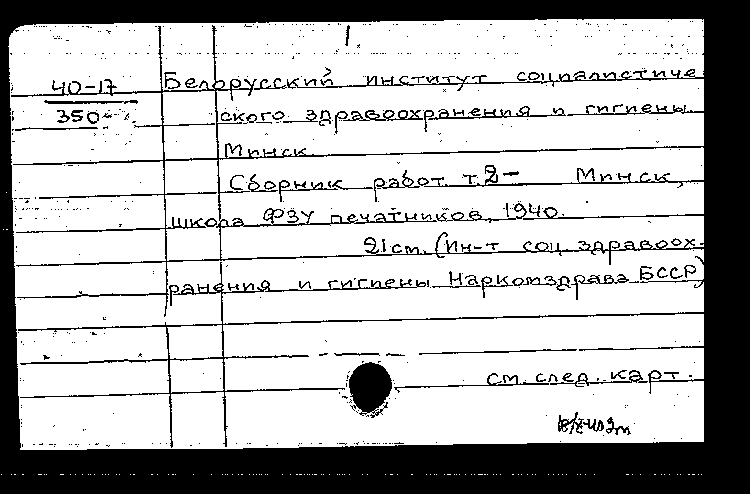 40-17
350
Белорусский институт социалистиче-
ского здравоохранения и гигиены.
Минск.
Сборник работ т.2- Минск,
школа ФЗУ печатников, 1940.
21 cm. (Ин-т соц. здравоох-
ранения и гигиены Наркомздрава БССР)
см. след. карт.